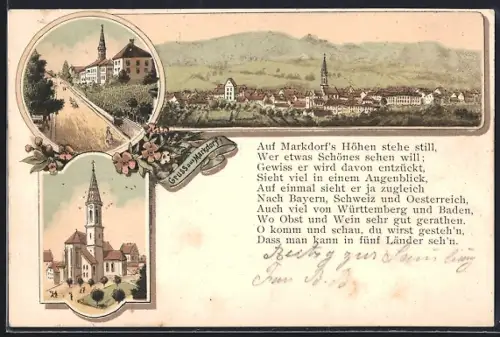 Gruss aus Markdorf
Auf Markdorf's Höhen stehe still,
Wer etwas Schönes sehen will;
Gewiss er wird davon entzückt,
Sieht viel in einem Augenblick,
Auf einmal sieht er ja zugleich
Nach Bayern, Schweiz und Oesterreich,
Auch viel von Württemberg und Baden,
Wo Obst und Wein sehr gut gerathen.
O komm und schau, du wirst gesteh'n,
Dass man kann in fünf Länder seh'n.
zur